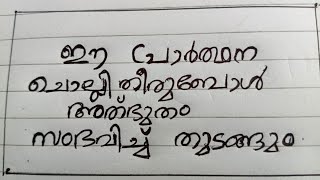 ഈ പ്രാർത്ഥന
ചൊല്ലി തീരുമ്പോൾ
അത്ഭുതം
സംഭവിച്ച് തുടങ്ങും.